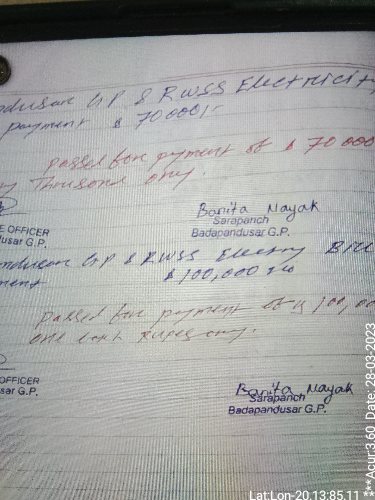 ndusar GP & RWSS Electricity
payment & 70000/-
passed for pyment of & 70000
ty Thousand only.
E OFFICER
dusar G.P.
Banita Nayak
Sarapanch
Badapandusar G.P.
ndusar GP & RWSS Electry Bill
ment & 100,000
passed for payment of 100,00
one lakh rupes only.
OFFICER
ar G.P.
Banita Nayak
Sarapanch
Badapandusar G.P.
Lat:Lon-20.13:85.11 ***Acur:3.60 Date: 28-03-2023